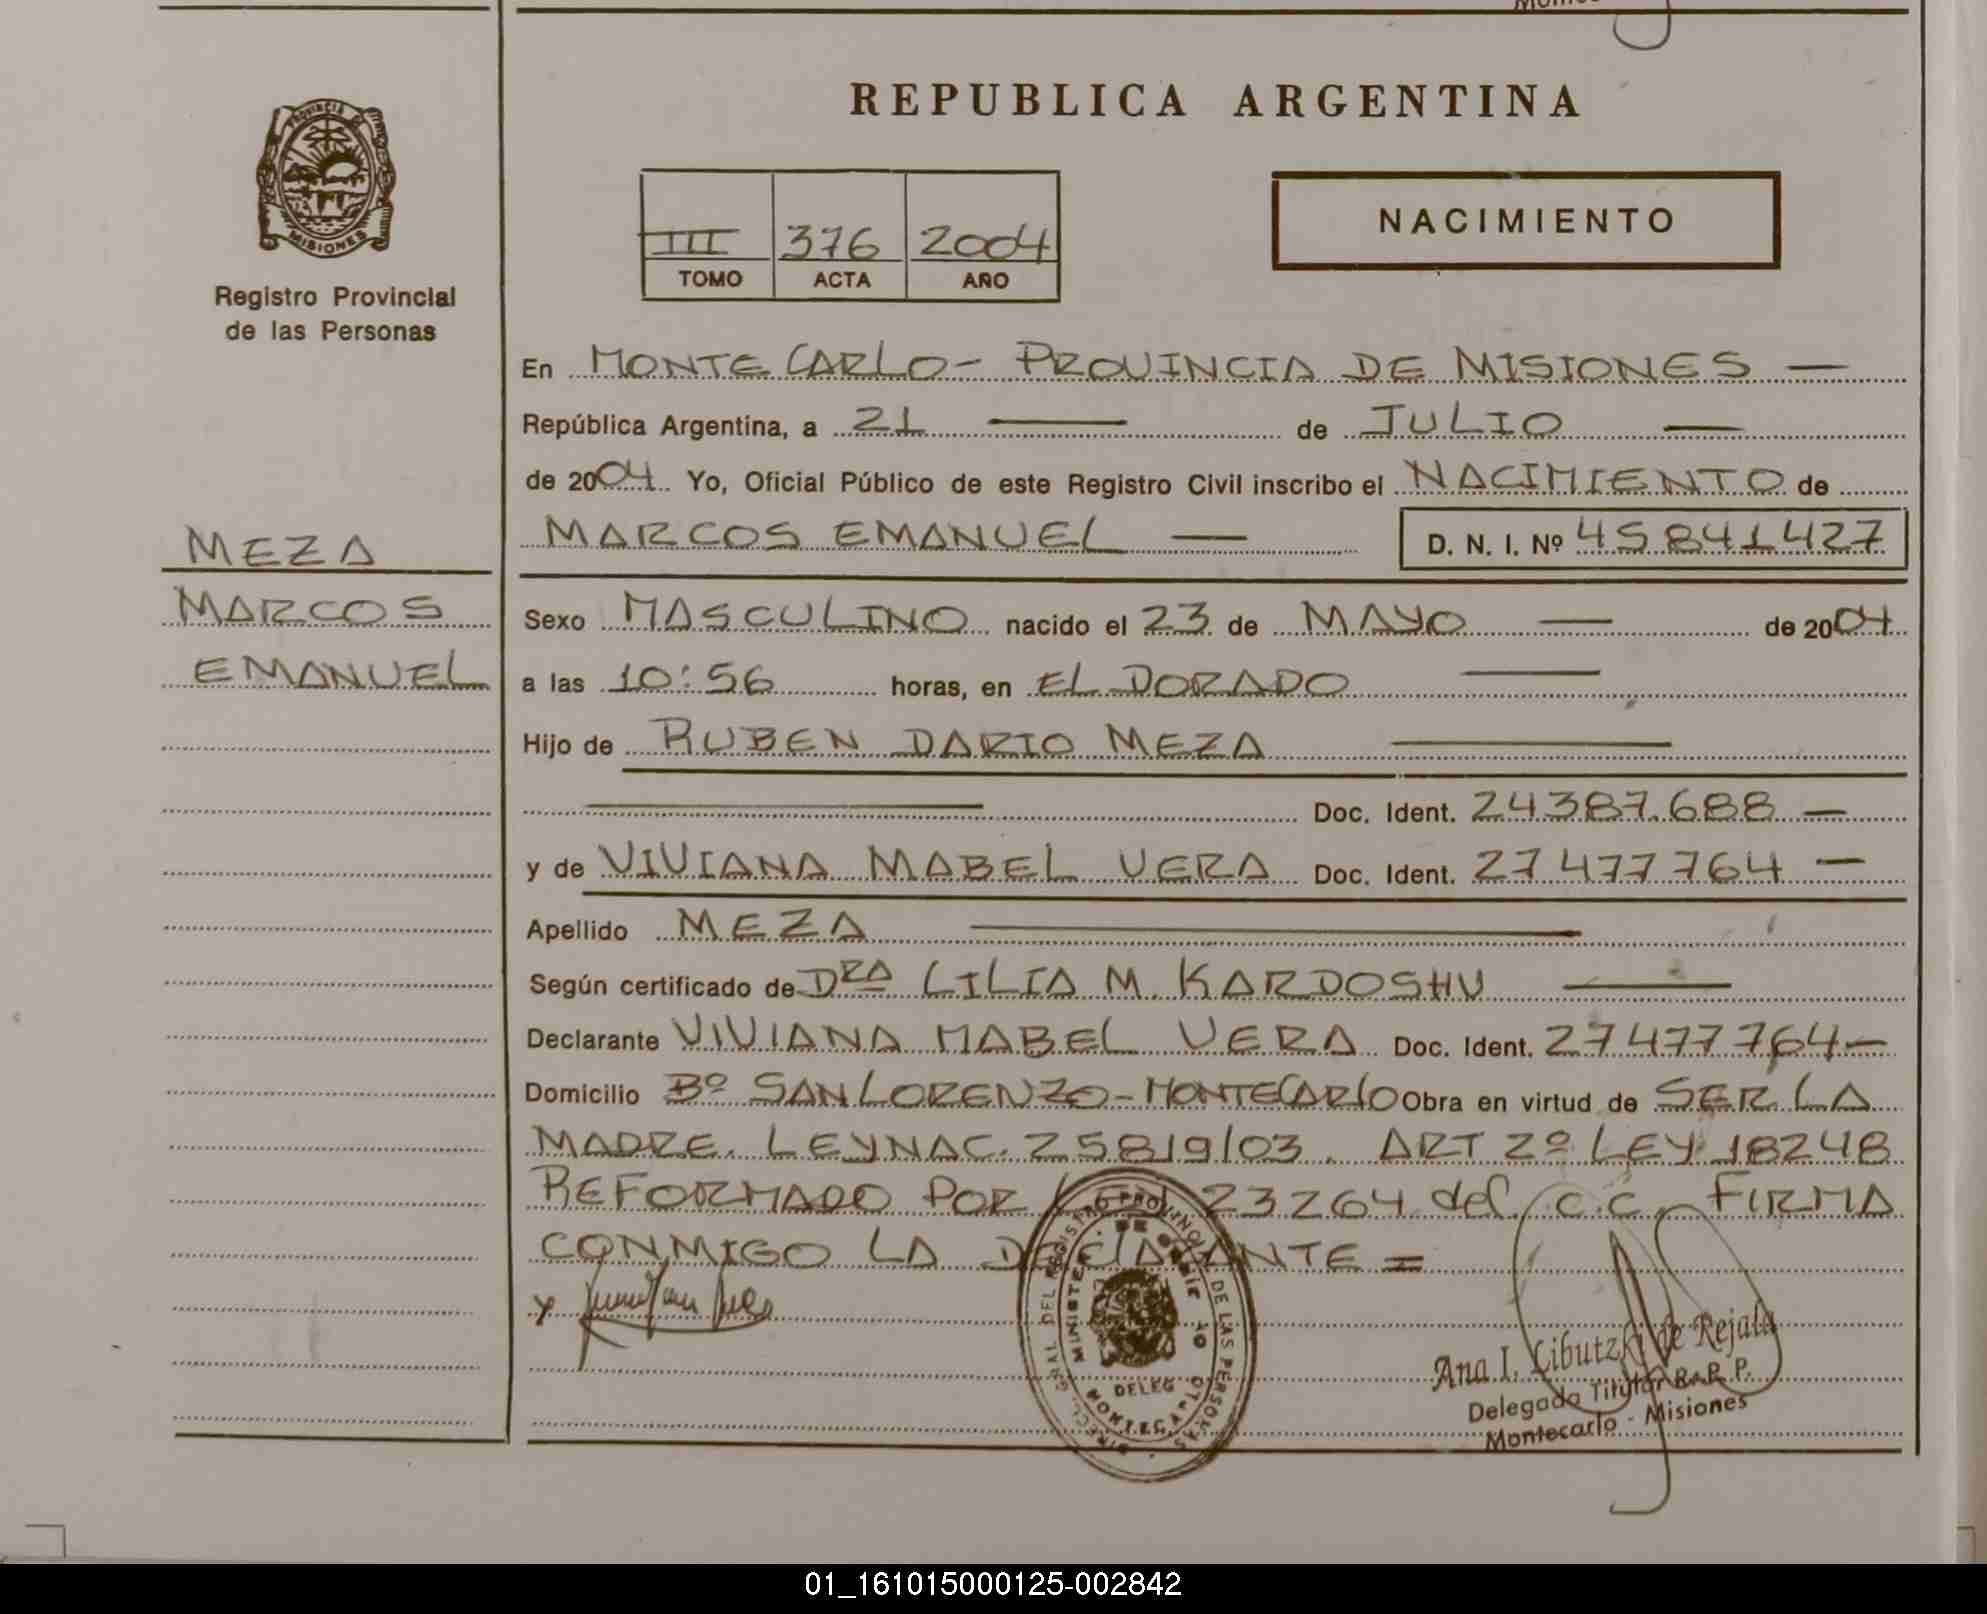 REPUBLICA ARGENTINA
PROVINCIA DE
MISIONES
Registro Provincial
de las Personas
III 376 2004
TOMO ACTA AÑO
NACIMIENTO
En MONTECARLO - PROVINCIA DE MISIONES —
República Argentina, a 21 — de JULIO —
de 2004 Yo, Oficial Público de este Registro Civil inscribo el NACIMIENTO de
MARCOS EMANUEL — D. N. I. Nº 45841427
MEZA
MARCOS
EMANUEL
Sexo MASCULINO nacido el 23 de MAYO — de 2004
a las 10:56 horas, en EL DORADO —
Hijo de RUBEN DARIO MEZA —
— Doc. Ident. 24387.688 —
y de VIVIANA MABEL VERA Doc. Ident. 27477764 —
Apellido MEZA —
Según certificado de DRA LILIA M. KARDOSHU —
Declarante VIVIANA MABEL VERA Doc. Ident. 27477764 —
Domicilio Bº SAN LORENZO - MONTECARLO Obra en virtud de SER LA
MADRE. LEY NAC. 25819/03. ART 2º LEY 18248
REFORMADO POR 23264 del C.C. FIRMA
CONMIGO LA DECLARANTE =
DIREC. GRAL. DEL REGISTRO PROVINCIAL DE LAS PERSONAS
MINISTERIO DE GOBIERNO
DELEG
MONTECARLO
Ana I. Libutzki de Rejala
Delegado Titular R. P. P.
Montecarlo - Misiones
01_161015000125-002842